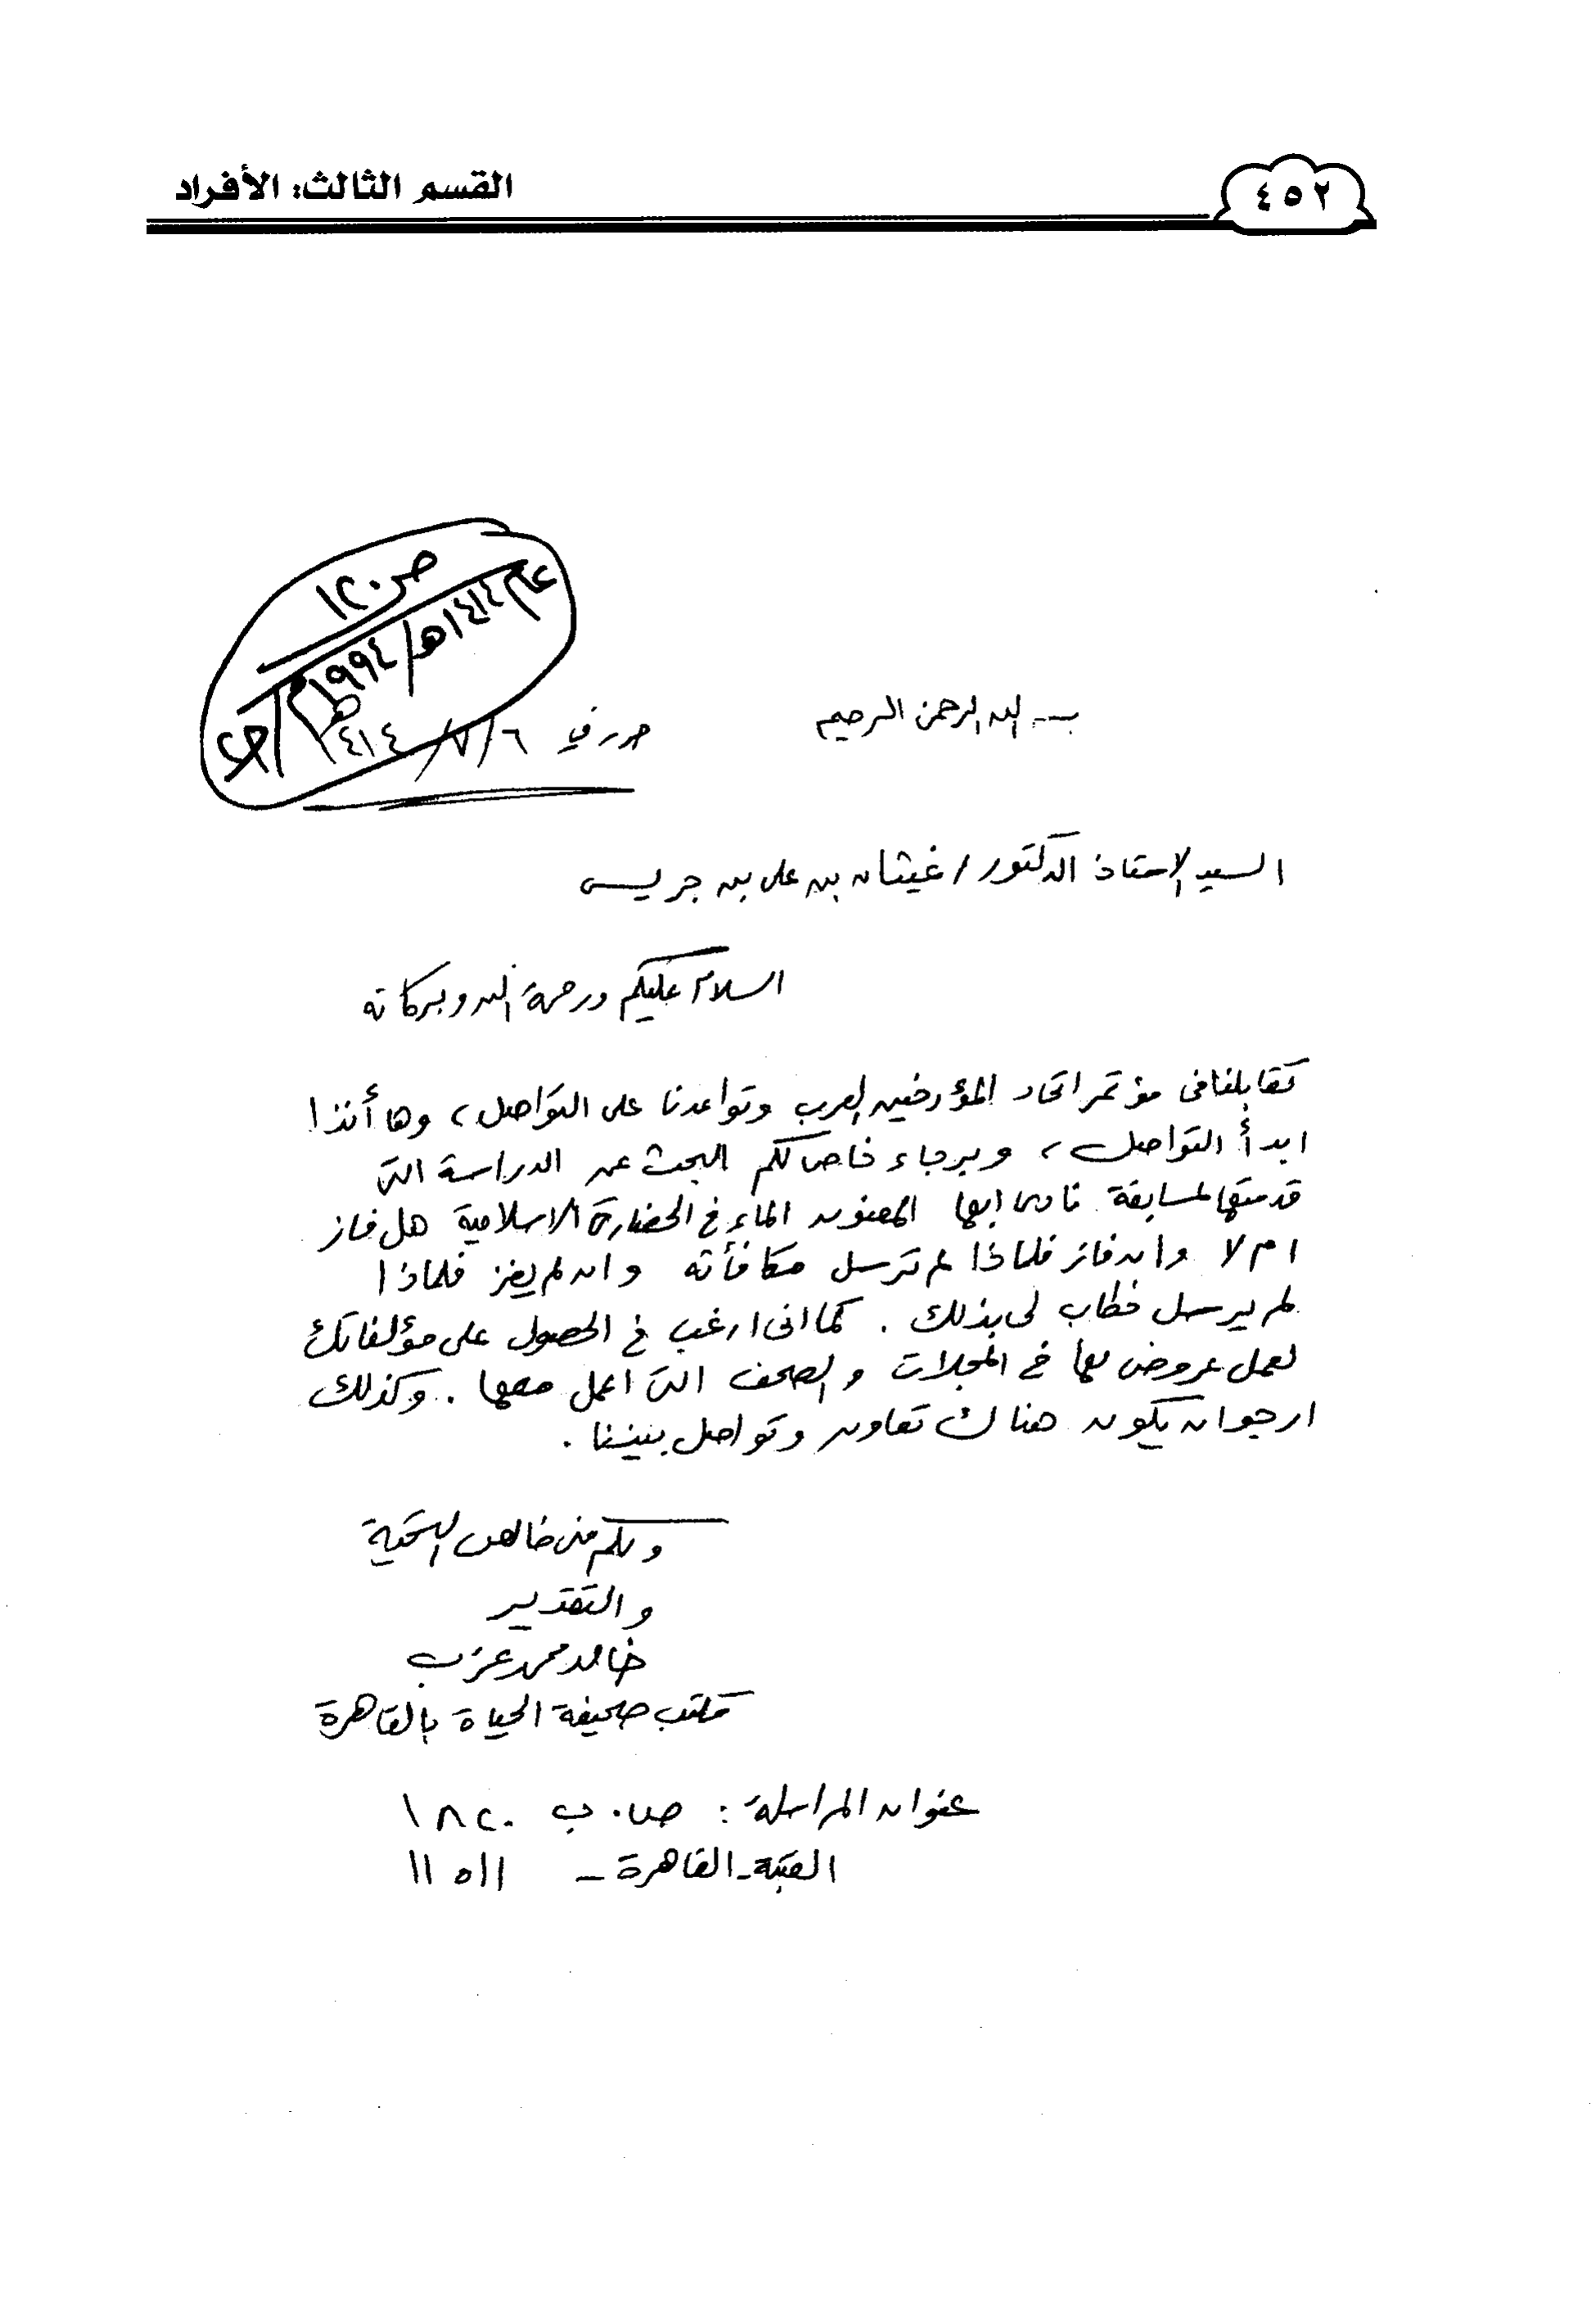 القسم الثالث: الأفراد
٤٥٢
ص ١٢٠
عام ١٤١٤هـ / ١٩٩٤م
بسم الله الرحمن الرحيم
حرر في ٦ / ٧ / ١٤١٤هـ
السيد الاستاذ الدكتور / غيثان بن على بن جريس
السلام عليكم ورحمة الله وبركاته
تقابلنا فى مؤتمر اتحاد المؤرخين العرب وتواعدنا على التواصل، وها أنذا
ابدأ التواصل، وبرجاء خاص لكم البحث عن الدراسة التى
قدمتها لمسابقة نادى ابها المعنون الماء فى الحضارة الاسلامية هل فاز
ام لا وان فاز فلماذا لم ترسل مكافأته وان لم يفز فلماذا
لم يرسل خطاب لى بذلك . كما انى ارغب فى الحصول على مؤلفاتك
لعمل عروض لها فى المجلات والصحف التى اعمل معها . وكذلك
ارجو ان يكون هناك تعاون وتواصل بيننا .
ولكم منى خالص التحية
والتقدير
خالد محمد عزب
مكتب صحيفة الحياة بالقاهرة
عنوان المراسلة : ص . ب ١٨٢٠
العتبة - القاهرة - ١١٥١١